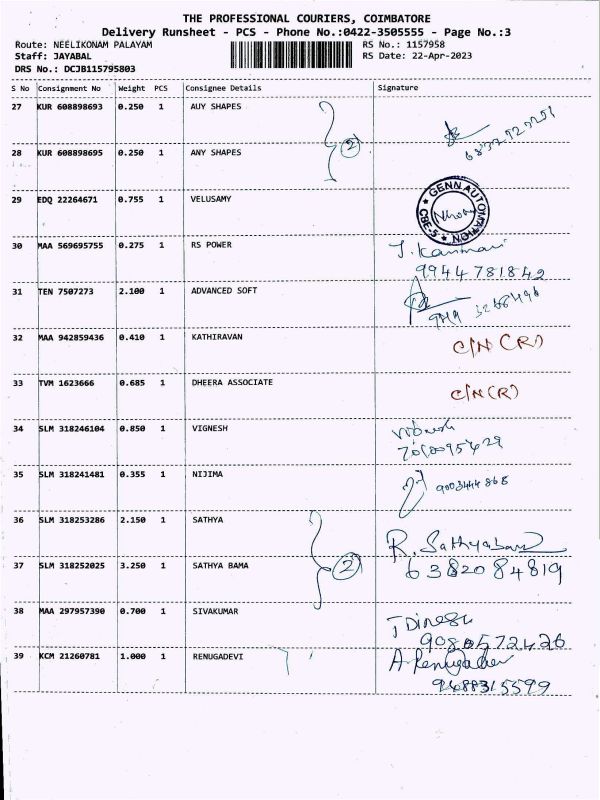 THE PROFESSIONAL COURIERS, COIMBATORE
Delivery Runsheet - PCS - Phone No.:0422-3505555 - Page No.:3
Route: NEELIKONAM PALAYAM RS No.: 1157958
Staff: JAYABAL RS Date: 22-Apr-2023
DRS No.: DCJB115795803
S No Consignment No Weight PCS Consignee Details Signature
27 KUR 608898693 0.250 1 AUY SHAPES
2
28 KUR 608898695 0.250 1 ANY SHAPES
29 EDQ 22264671 0.755 1 VELUSAMY
GENN AUTOMATION
CBE-5
30 MAA 569695755 0.275 1 RS POWER
9944781842
31 TEN 7507273 2.100 1 ADVANCED SOFT
32 MAA 942859436 0.410 1 KATHIRAVAN C/N (R)
33 TVM 1623666 0.685 1 DHEERA ASSOCIATE C/N (R)
34 SLM 318246104 0.850 1 VIGNESH
35 SLM 318241481 0.355 1 NIJIMA
36 SLM 318253286 2.150 1 SATHYA
R. Sathyabama
37 SLM 318252025 3.250 1 SATHYA BAMA 2 6382084819
38 MAA 297957390 0.700 1 SIVAKUMAR
J Dinesh
9080572426
39 KCM 21260781 1.000 1 RENUGADEVI
A. Renugadevi
9488315599